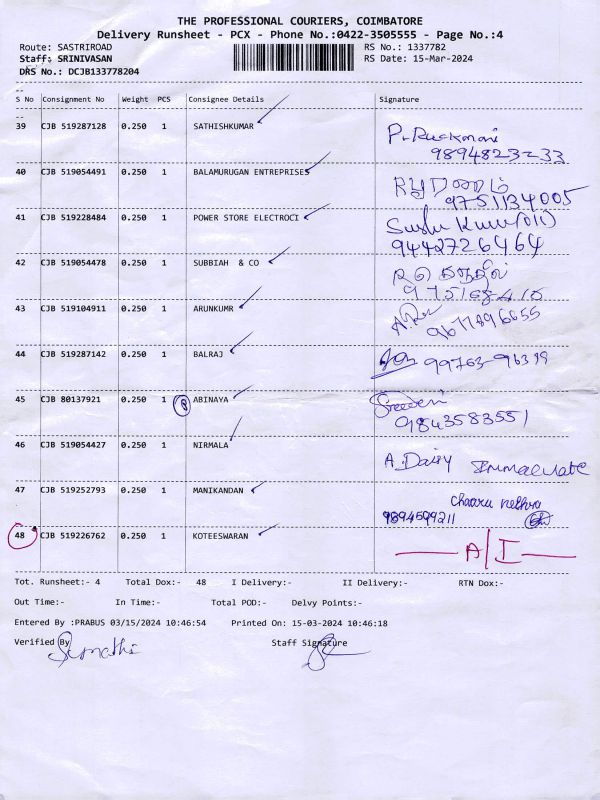 THE PROFESSIONAL COURIERS, COIMBATORE
Delivery Runsheet - PCX - Phone No.:0422-3505555 - Page No.:4
Route: SASTRIROAD RS No.: 1337782
Staff: SRINIVASAN RS Date: 15-Mar-2024
DRS No.: DCJB133778204
S No Consignment No Weight PCS Consignee Details Signature
39 CJB 519287128 0.250 1 SATHISHKUMAR P. Rukmani
9894823233
40 CJB 519054491 0.250 1 BALAMURUGAN ENTREPRISES
9751134005
41 CJB 519228484 0.250 1 POWER STORE ELECTROCI
9442726464
42 CJB 519054478 0.250 1 SUBBIAH & CO
43 CJB 519104911 0.250 1 ARUNKUMR
9677896655
44 CJB 519287142 0.250 1 BALRAJ 99763-96399
45 CJB 80137921 0.250 1 8 ABINAYA
9843583551
46 CJB 519054427 0.250 1 NIRMALA A. Daisy Immaculate
47 CJB 519252793 0.250 1 MANIKANDAN Chaaru nethra
9894599211
48 CJB 519226762 0.250 1 KOTEESWARAN A/I
Tot. Runsheet:- 4 Total Dox:- 48 I Delivery:- II Delivery:- RTN Dox:-
Out Time:- In Time:- Total POD:- Delvy Points:-
Entered By :PRABUS 03/15/2024 10:46:54 Printed On: 15-03-2024 10:46:18
Verified By Staff Signature
Sumathi